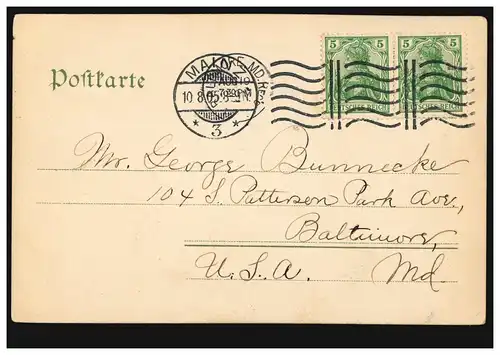 5 5 5 5
DEUTSCHES REICH DEUTSCHES REICH
Postkarte
MAINZ
10.8.05.8-9N.
* 3 *
Mr. George Bunnecke
104 S. Patterson Park Ave.,
Baltimore,
U.S.A. Md.